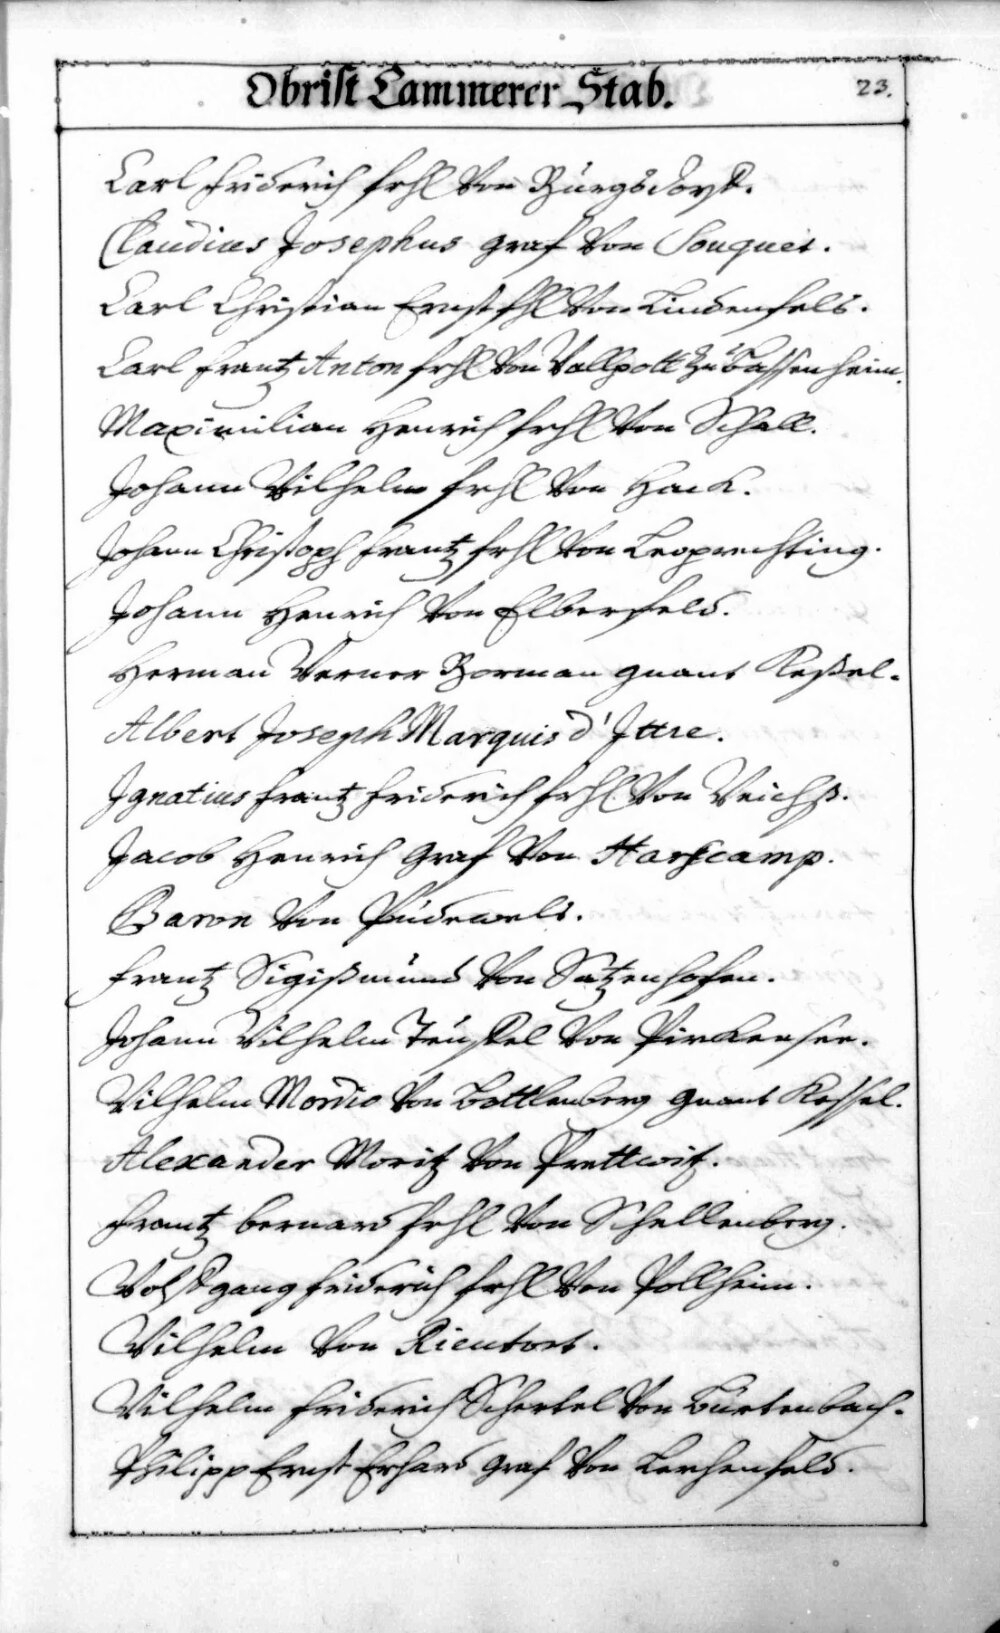 Obrist Cammerer Stab.
23.
Carl Friderich frhl Von Burgsdorff.
Claudius Josephus graf Von Souquet.
Carl Christian Ernst fhl Von Lindenfels.
Carl Frantz Anton frhl Von Wallpott zu Bassenheim.
Maximilian Henrich frhl Von Schall.
Johann Wilhelm frhl Von Hack.
Johann Christoph Frantz frhl Von Leoprechting.
Johann Henrich Von Elberfeld.
Herman Werner Borman gnant Keßel.
Albert Joseph Marquis d'Ittre.
Ignatius Frantz Friderich frhl Von Weichß.
Jacob Henrich Graf Von Harscamp.
Baron Von Pudewels.
Frantz Sigißmund Von Satzenhofen.
Johann Wilhelm Teuffel Von Pirckensee.
Wilhelm Von Bottlenberg gnant Kessel.
Alexander Moritz Von Prettwitz.
Frantz bernard frhl Von Schellenberg.
Wolffgang Friderich frhl Von Pollheim.
Wilhelm Von Rientort.
Wilhelm Friderich Schertel Von Burtenbach.
Philipp Ernst Erhard Graf Von Lerchenfeld.